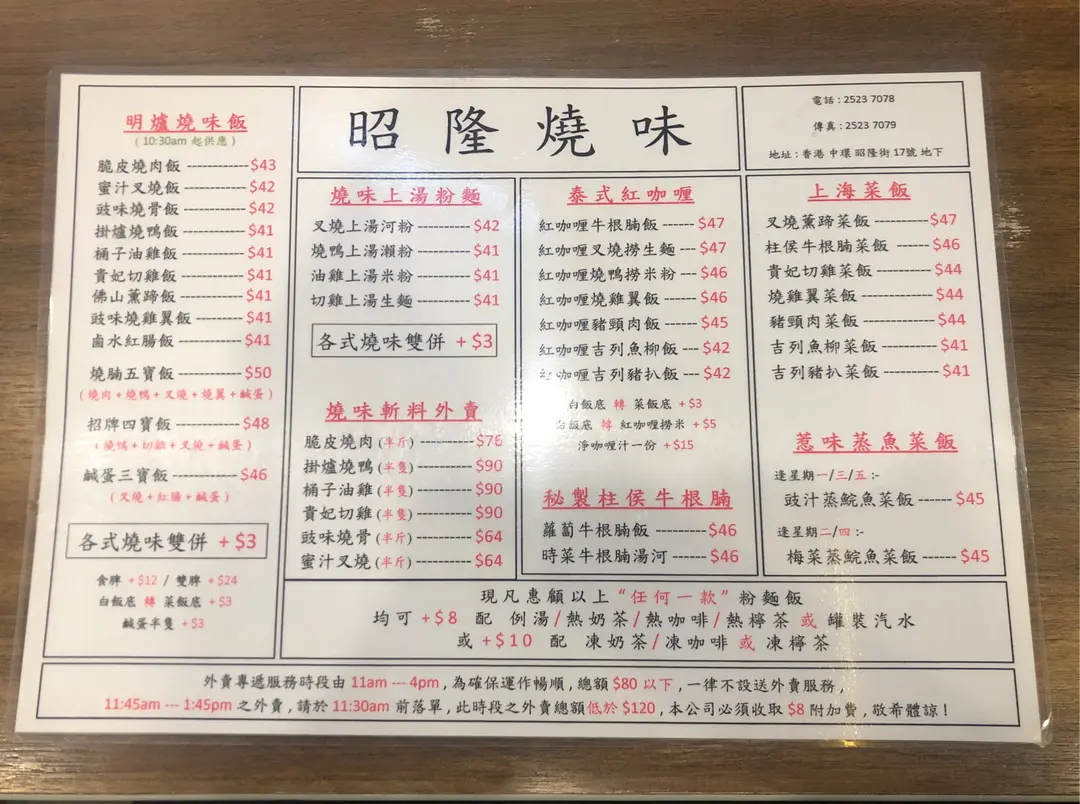 昭隆燒味
電話 : 2523 7078
傳真 : 2523 7079
地址 : 香港 中環 昭隆街 17號 地下
明爐燒味飯
( 10:30am 起供應 )
脆皮燒肉飯 ------------$43
蜜汁叉燒飯 ------------$42
豉味燒骨飯 ------------$42
掛爐燒鴨飯 ------------$41
桶子油雞飯 ------------$41
貴妃切雞飯 ------------$41
佛山薰蹄飯 ------------$41
豉味燒雞翼飯 ---------$41
鹵水紅腸飯 ------------$41
燒腩五寶飯 ------------$50
( 燒肉 + 燒鴨 + 叉燒 + 燒翼 + 鹹蛋 )
招牌四寶飯 ------------$48
( 燒鴨 + 切雞 + 叉燒 + 鹹蛋 )
鹹蛋三寶飯 ------------$46
( 叉燒 + 紅腸 + 鹹蛋 )
各式燒味雙併 + $3
食髀 + $12 / 雙髀 + $24
白飯底 轉 菜飯底 + $3
鹹蛋半隻 + $3
燒味上湯粉麵
叉燒上湯河粉 ---------- $42
燒鴨上湯瀨粉 ---------- $41
油雞上湯米粉 ---------- $41
切雞上湯生麵 ---------- $41
各式燒味雙併 + $3
燒味斬料外賣
脆皮燒肉 (半斤) ----------$76
掛爐燒鴨 (半隻) ----------$90
桶子油雞 (半隻) ----------$90
貴妃切雞 (半隻) ----------$90
豉味燒骨 (半斤) ----------$64
蜜汁叉燒 (半斤) ----------$64
泰式紅咖喱
紅咖喱牛根腩飯 ------ $47
紅咖喱叉燒撈生麵 --- $47
紅咖喱燒鴨撈米粉 --- $46
紅咖喱燒雞翼飯 ------ $46
紅咖喱豬頸肉飯 ------ $45
紅咖喱吉列魚柳飯 --- $42
紅咖喱吉列豬扒飯 --- $42
白飯底 轉 菜飯底 + $3
白飯底 轉 紅咖喱撈米 + $5
淨咖喱汁一份 + $15
秘製柱侯牛根腩
蘿蔔牛根腩飯 ---------$46
時菜牛根腩湯河 ------$46
上海菜飯
叉燒薰蹄菜飯 ---------$47
柱侯牛根腩菜飯 ------ $46
貴妃切雞菜飯 --------- $44
燒雞翼菜飯 ------------$44
豬頸肉菜飯 ------------$44
吉列魚柳菜飯 ---------$41
吉列豬扒菜飯 ---------$41
惹味蒸魚菜飯
逢星期一/三/五 :-
豉汁蒸鯇魚菜飯 ------ $45
逢星期二/四 :-
梅菜蒸鯇魚菜飯 ------ $45
現凡惠顧以上 “任何一款” 粉麵飯
均可 + $8 配 例湯/熱奶茶/熱咖啡/熱檸茶 或 罐裝汽水
或 + $10 配 凍奶茶/凍咖啡 或 凍檸茶
外賣專遞服務時段由 11am --- 4pm , 為確保運作暢順 , 總額 $80 以下 , 一律不設送外賣服務 ,
11:45am --- 1:45pm 之外賣 , 請於 11:30am 前落單 , 此時段之外賣總額低於 $120 , 本公司必須收取 $8 附加費 , 敬希體諒 !